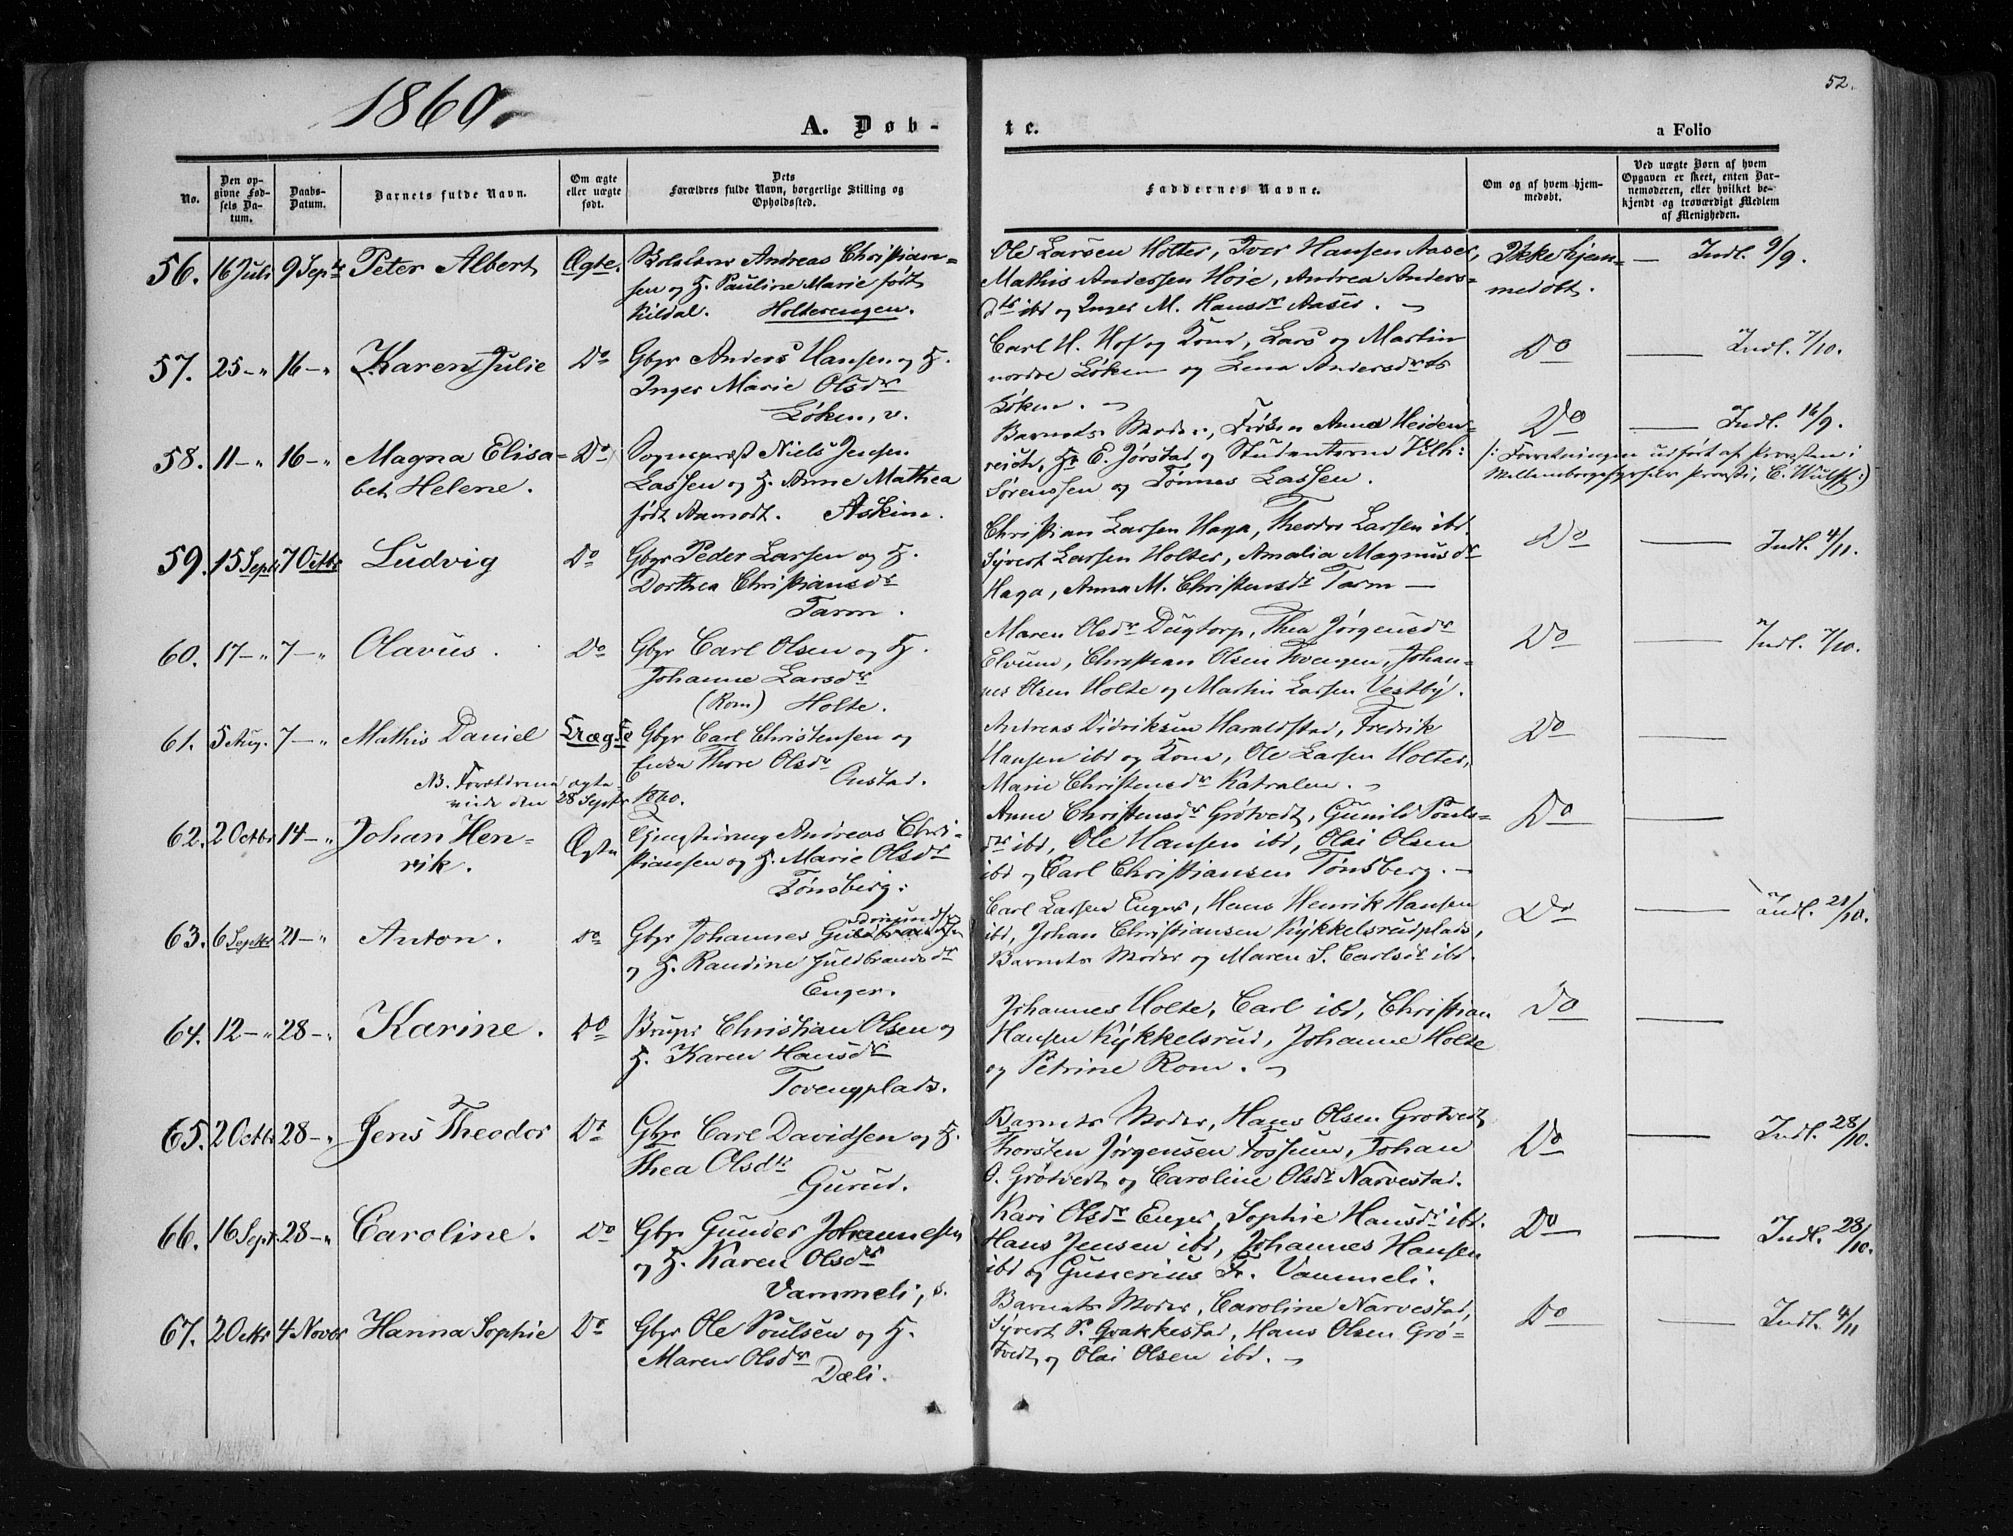 1860.
52.
A. Døb-
te.
a Folio
No.
Den op-
givne Fød-
sels Da-
tum.
Daabs-
Datum.
Barnets fulde Navn.
Om ægte
eller uægte
født.
Dets
Forældres fulde Navn, borgerlige Stilling og
Opholdssted.
Faddernes Navne.
Om og af hvem hjem-
medøbt.
Ved uægte Børn af hvem
Opgaven er skeet, enten Bar-
nemoderen, eller hvilket be-
kjendt og troværdigt Medlem
af Menigheden.
56. 16 Juli 9 Septr Peter Albert Ægte. Andreas Christian-
sen og H. Pauline Marie født
Kildal. Holterengen.
Ole Larsen Holter, Iver Hansen Aaser,
Mathis Anderssen Høie, Andrea Anders-
dtr ibd og Inger M. Hansdr Aaser.
Ikke hjem-
medøbt.
— Indl. 9/9.
57. 25 -„ 16 -„ Karen Julie Do Gbgr Anders Hansen og H.
Inger Marie Olsdr
Løken, v.
Carl H. Hof og Kone, Lars og Martin
nordre Løken og Lena Andersdtr
Løken.
Do — Indl. 7/10.
58. 11 -„ 16 -„ Magna Elisa-
bet Helene. Do Sognepræst Niels Jensen
Lassen og H. Anne Mathea
født Aamodt. Askim.
Barnets Moder, Frøken Anna Heiden-
reich, Hr E. Jørstad og Studenterne Vilh:
Sørenssen og Tønnes Lassen.
Do — Indl. 16/9.
/: Forretningen udført af Provsten i
Mellemborgesyssels Provsti, C. Wulff :/
59. 15 Septr 7 Octbr Ludvig Do Gbgr Peder Larsen og H.
Dorthea Christiansdr
Tarm.
Christian Larsen Haga, Theodor Larsen ibd
Syvert Larsen Holter, Amalia Magnusdr
Haga, Anna M. Christensdr Tarm —
Do — Indl. 4/11.
60. 17 -„ 7 -„ Olavus. Do Gbgr Carl Olsen og H.
Johanne Larsdr
(Rom) Holte.
Maren Olsdr Dugtorp, Thea Jørgensdr
Elvum, Christian Olsen Tovengen, Johan-
nes Olsen Holte og Martin Larsen Vestby.
Do — Indl. 7/10.
61. 5 Aug. 7 -„ Mathis Daniel Uægte Gbgr Carl Christensen og
Enke Thore Olsdr
Onstad.
NB. Forældrene ægte-
viede den 28 Septr 1860.
Andreas Didriksen Haraldstad, Fredrik
Hansen ibd og Kone, Ole Larsen Holter,
Marie Christensdr Katralen.
Do —
62. 2 Octbr 14 -„ Johan Hen-
rik. Ægte Andreas Chri-
stiansen og H. Marie Olsdr
Tønsberg.
Anne Christensdr Grøtvedt, Gunild Pouls-
dtr ibd, Ole Hansen ibd, Olai Olsen
ibd og Carl Christiansen Tønsberg. —
Do —
63. 6 Septbr 21 -„ Anton. Do Gbgr Johannes Gudmundsen
og H. Randine Guldbrandsdr
Enger.
Carl Larsen Enger, Hans Henrik Hansen
ibd, Johan Christiansen Kykkelsrudplads,
Barnets Moder og Maren S. Carlsdr ibd.
Do — Indl. 21/10.
64. 12 -„ 28 -„ Karine. Do Christian Olsen og
H. Karen Hansdr
Tovengplads.
Johannes Holte, Carl ibd, Christian
Hansen Kykkelsrud, Johanne Holte
og Petrine Rom.
Do —
65. 2 Octbr 28 -„ Jens Theodor Do Gbgr Carl Davidsen og H.
Thea Olsdtr
Gurud.
Barnets Moder, Hans Olsen Grøtvedt
Thorsten Jørgensen Fossum, Johan
O. Grøtvedt og Caroline Olsdr Narvestad.
Do — Indl. 28/10.
66. 16 Septr 28 -„ Caroline. Do Gbgr Gunder Johannesen
og H. Karen Olsdr
Vammeli, s.
Kari Olsdr Enger, Sophie Hansdr ibd.
Hans Jensen ibd, Johannes Hansen
ibd og Gunerius Fr. Vammeli.
Do — Indl. 28/10.
67. 2 Octbr 4 Novbr Hanna Sophie Do Gbgr Ole Poulsen og H.
Maren Olsdr
Dæli.
Barnets Moder, Caroline Narvestad,
Syvert P. Grakkestad, Hans Olsen Grø-
tvedt og Olai Olsen ibd.
Do — Indl. 4/11